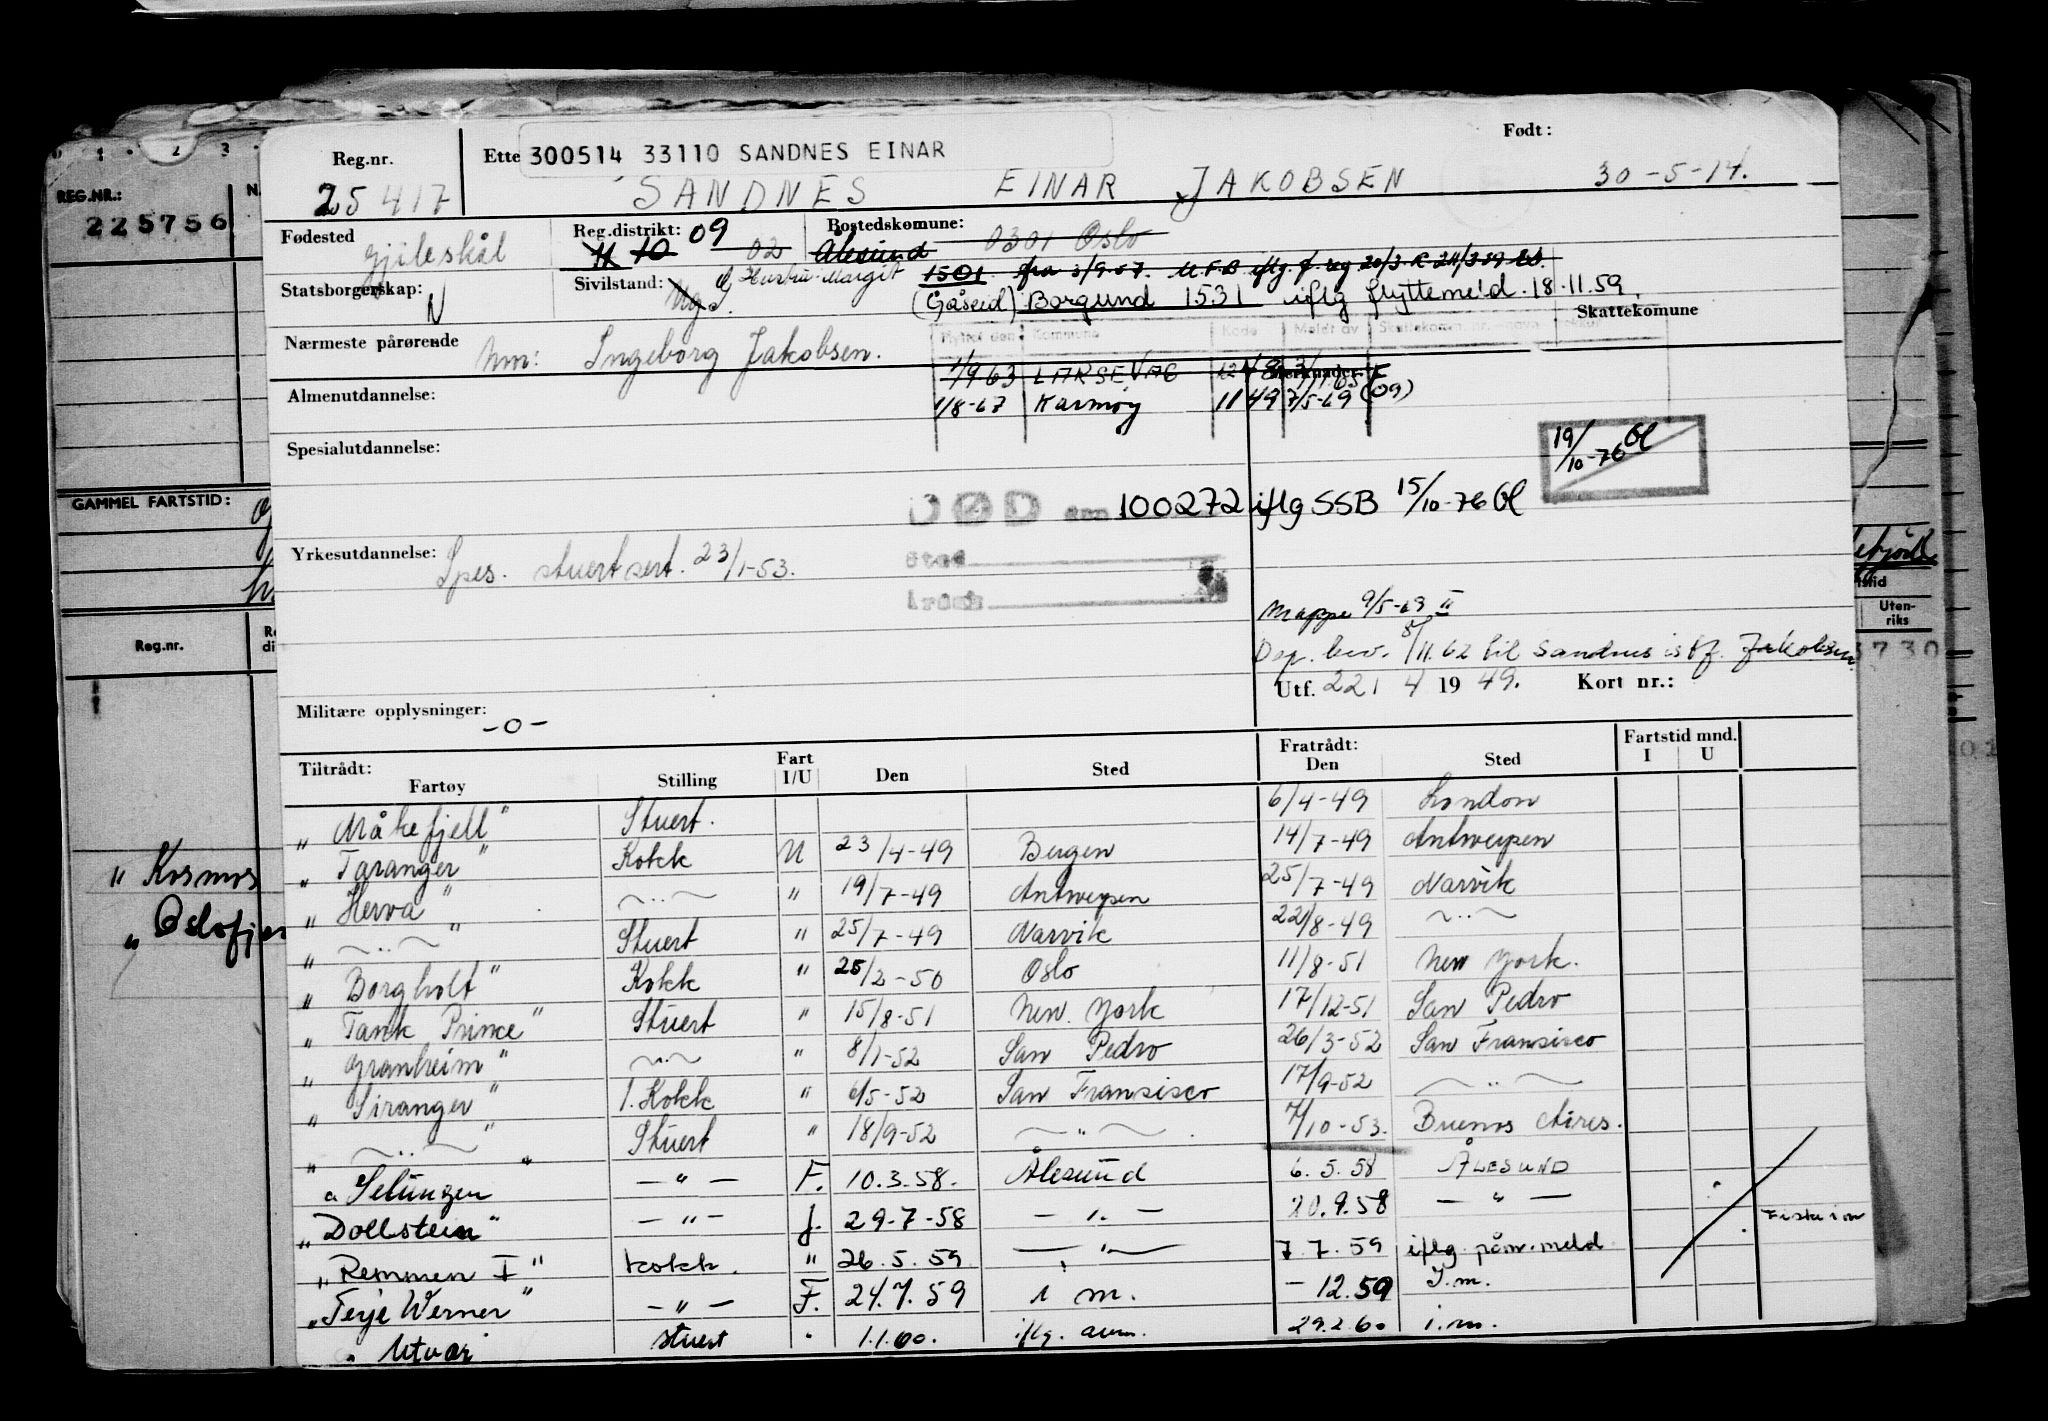 Reg.nr. Ette 300514 33110 SANDNES EINAR Født:
25417 SANDNES EINAR JAKOBSEN 30-5-14.
Fødested Gjileskål Reg.distrikt: 11 10 09 02 Bostedskomune: Ålesund 0301 Oslo
Statsborgerskap: N Sivilstand: Ug. G Hustru: Margit 1501 fra
(Gåseid) Borgund 1531 iflg flyttemeld. 18.11.59.
Skattekomune
Flyttet den Kommune Kode Meldt av
Nærmeste pårørende Mm: Ingeborg Jakobsen.
1/9 63 LARSEVÅG
Almenutdannelse: 1/8-67 Karmøy 1149 7/5-69 (09)
Spesialutdannelse: 19/10-76 Øl
DØD den 100272 iflg SSB 15/10-76 Øl
Yrkesutdannelse: Spes. stuert sert. 23/1-53.
Sted
Årsak
Mappe 9/5-69 II
Dep. bev. 5/11.62 til Sandnes istf. Jakobsen
Utf. 22/4 1949. Kort nr.:
Militære opplysninger: -0-
Tiltrådt: Fartøy Stilling Fart I/U Den Sted Fratrådt: Den Sted Fartstid mnd. I U
"Måkefjell" Stuert. 6/4-49 London
"Taranger" Kokk U 23/4-49 Bergen 14/7-49 Antwerpen
"Herva" ~..~ " 19/7-49 Antwerpen 25/7-49 Narvik
" ~..~ " Stuert " 25/7-49 Narvik 22/8-49 ~..~
"Borgholt" Kokk " 25/2-50 Oslo 11/8-51 New York.
"Tank Prince" Stuert " 15/8-51 New York 17/12-51 San Pedro
"Granheim" ~..~ " 8/1-52 San Pedro 26/3-52 San Fransisco
"Siranger" 1. Kokk " 6/5-52 San Fransisco 17/9-52 ~ " ~
" ~..~ " Stuert " 18/9-52 ~ " ~ 7/10-53. Buenos Aires.
"Selungen" - " - F. 10.3.58. Ålesund 6.5.58 ÅLESUND
"Dollstein" - " - f. 29-7-58 - " - 20.9.58 - " -
"Remmen I" kokk. " 26.5.59 - " - 7.7.59 iflg. påm.meld.
"Terje Werner" - " - F. 24.7.59 i m. - 12.59 I.m.
" Utvær stuert " 1.1.60. iflg. 29.2.60 i.m.
REG.NR.: N
225756
GAMMEL FARTSTID:
Reg.nr.
" Kosmos
" Oslofjor
Utenriks
3730